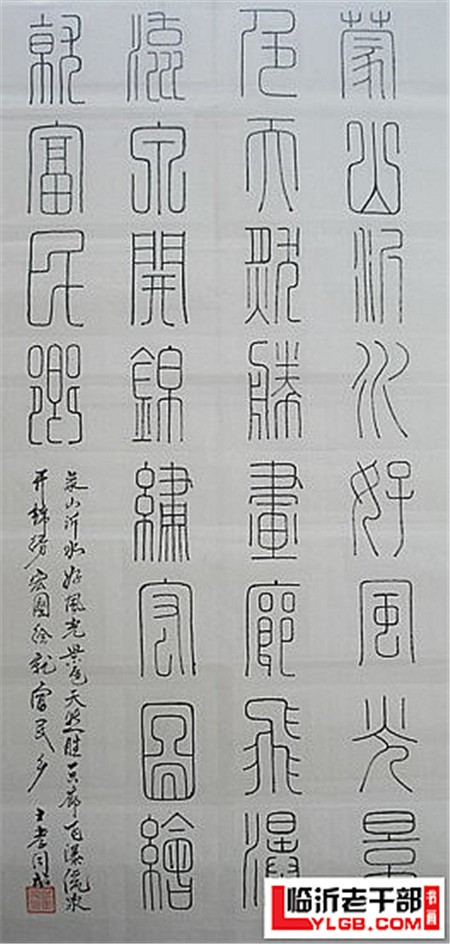 蒙山沂水好風光景
色天然勝畫廊飛瀑
流泉開錦繡宏圖繪
就富民鄉
蒙山沂水好風光景色天然胜画廊飞瀑流泉
开錦绣宏图绘就富民乡
临沂老干部书画
LYLGB.COM